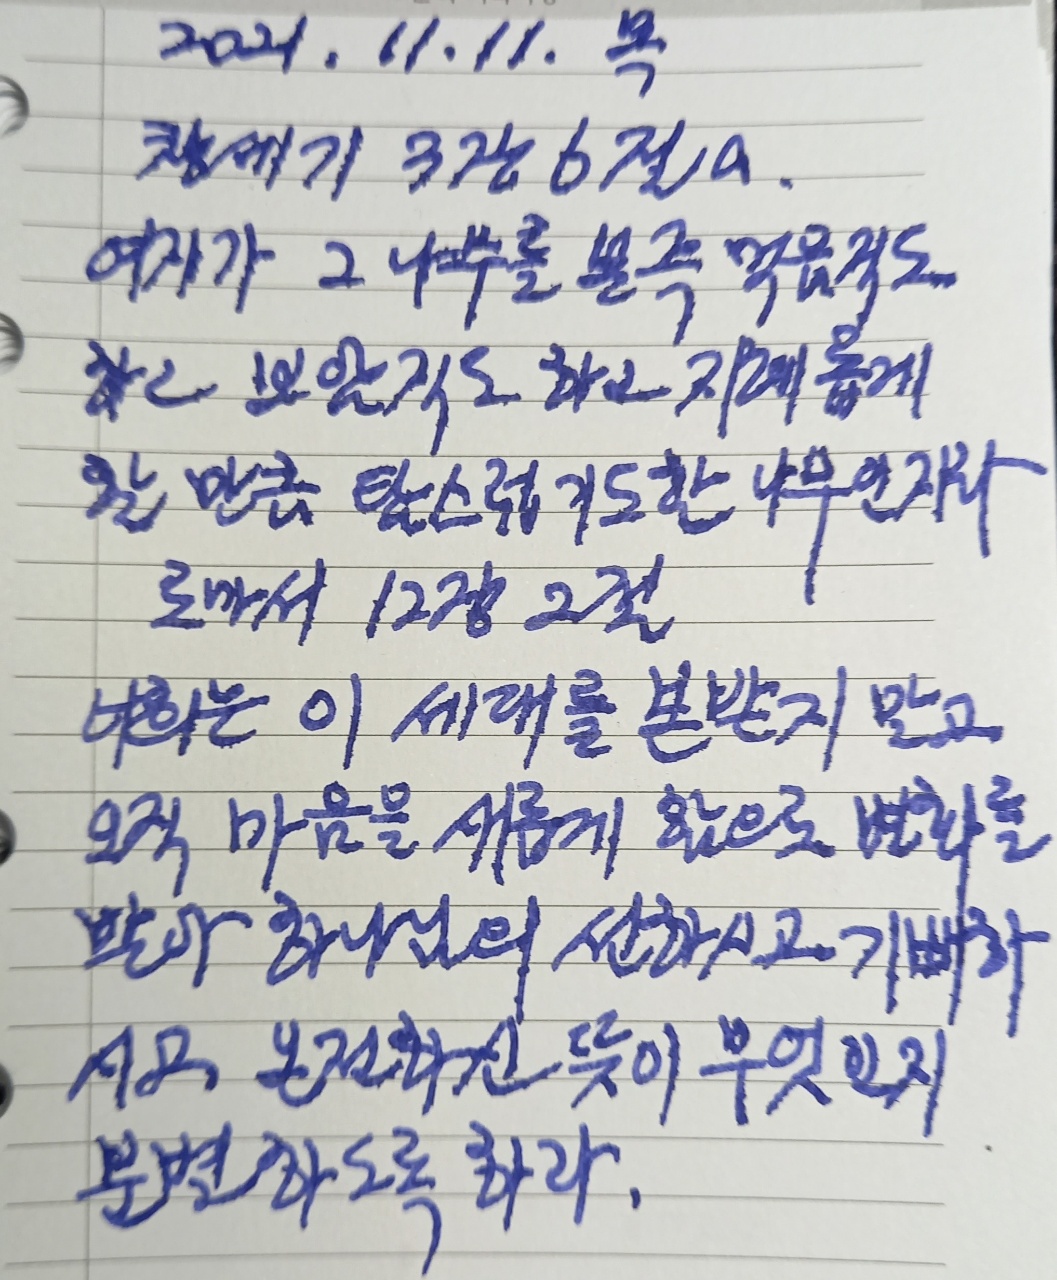 2021. 11. 11. 목
창세기 3장 6절a.
여자가 그 나무를 본즉 먹음직도
하고 보암직도 하고 지혜롭게
할 만큼 탐스럽기도한 나무인지라
로마서 12장 2절
너희는 이 세대를 본받지 말고
오직 마음을 새롭게 함으로 변화를
받아 하나님의 선하시고 기뻐하
시고 온전하신 뜻이 무엇인지
분별하도록 하라.